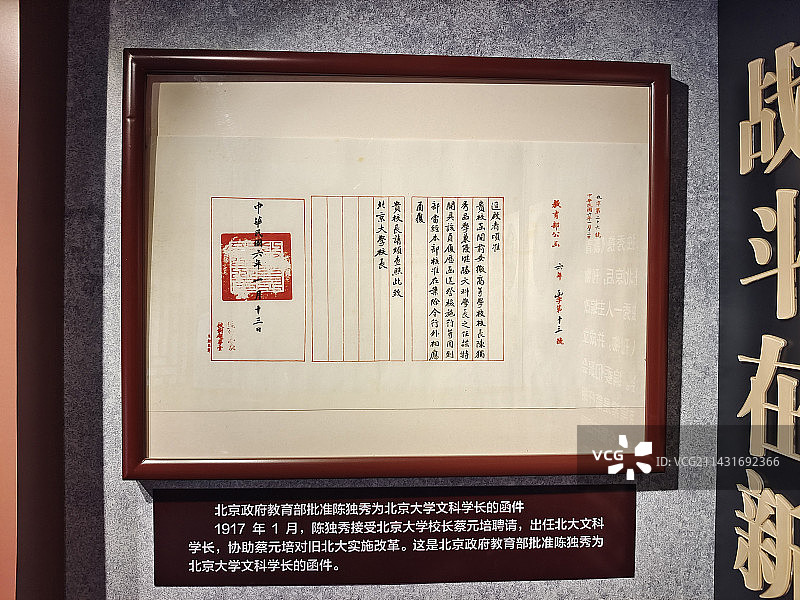 教育部公函 六年 字第十三號
逕啟者頃准
貴校函開前安徽高等學校校長陳獨
秀品學兼優堪勝文科學長之任茲特
開具該員履歷函送鑒核施行等因到
部當經本部核准在案除令行外相應
函復
貴校長請煩查照此致
北京大學校長
中華民國六年一月十三日
战斗在新
北京政府教育部批准陈独秀为北京大学文科学长的函件
1917 年 1 月，陈独秀接受北京大学校长蔡元培聘请，出任北大文科
学长，协助蔡元培对旧北大实施改革。这是北京政府教育部批准陈独秀为
北京大学文科学长的函件。
VCG
VCG211431692366